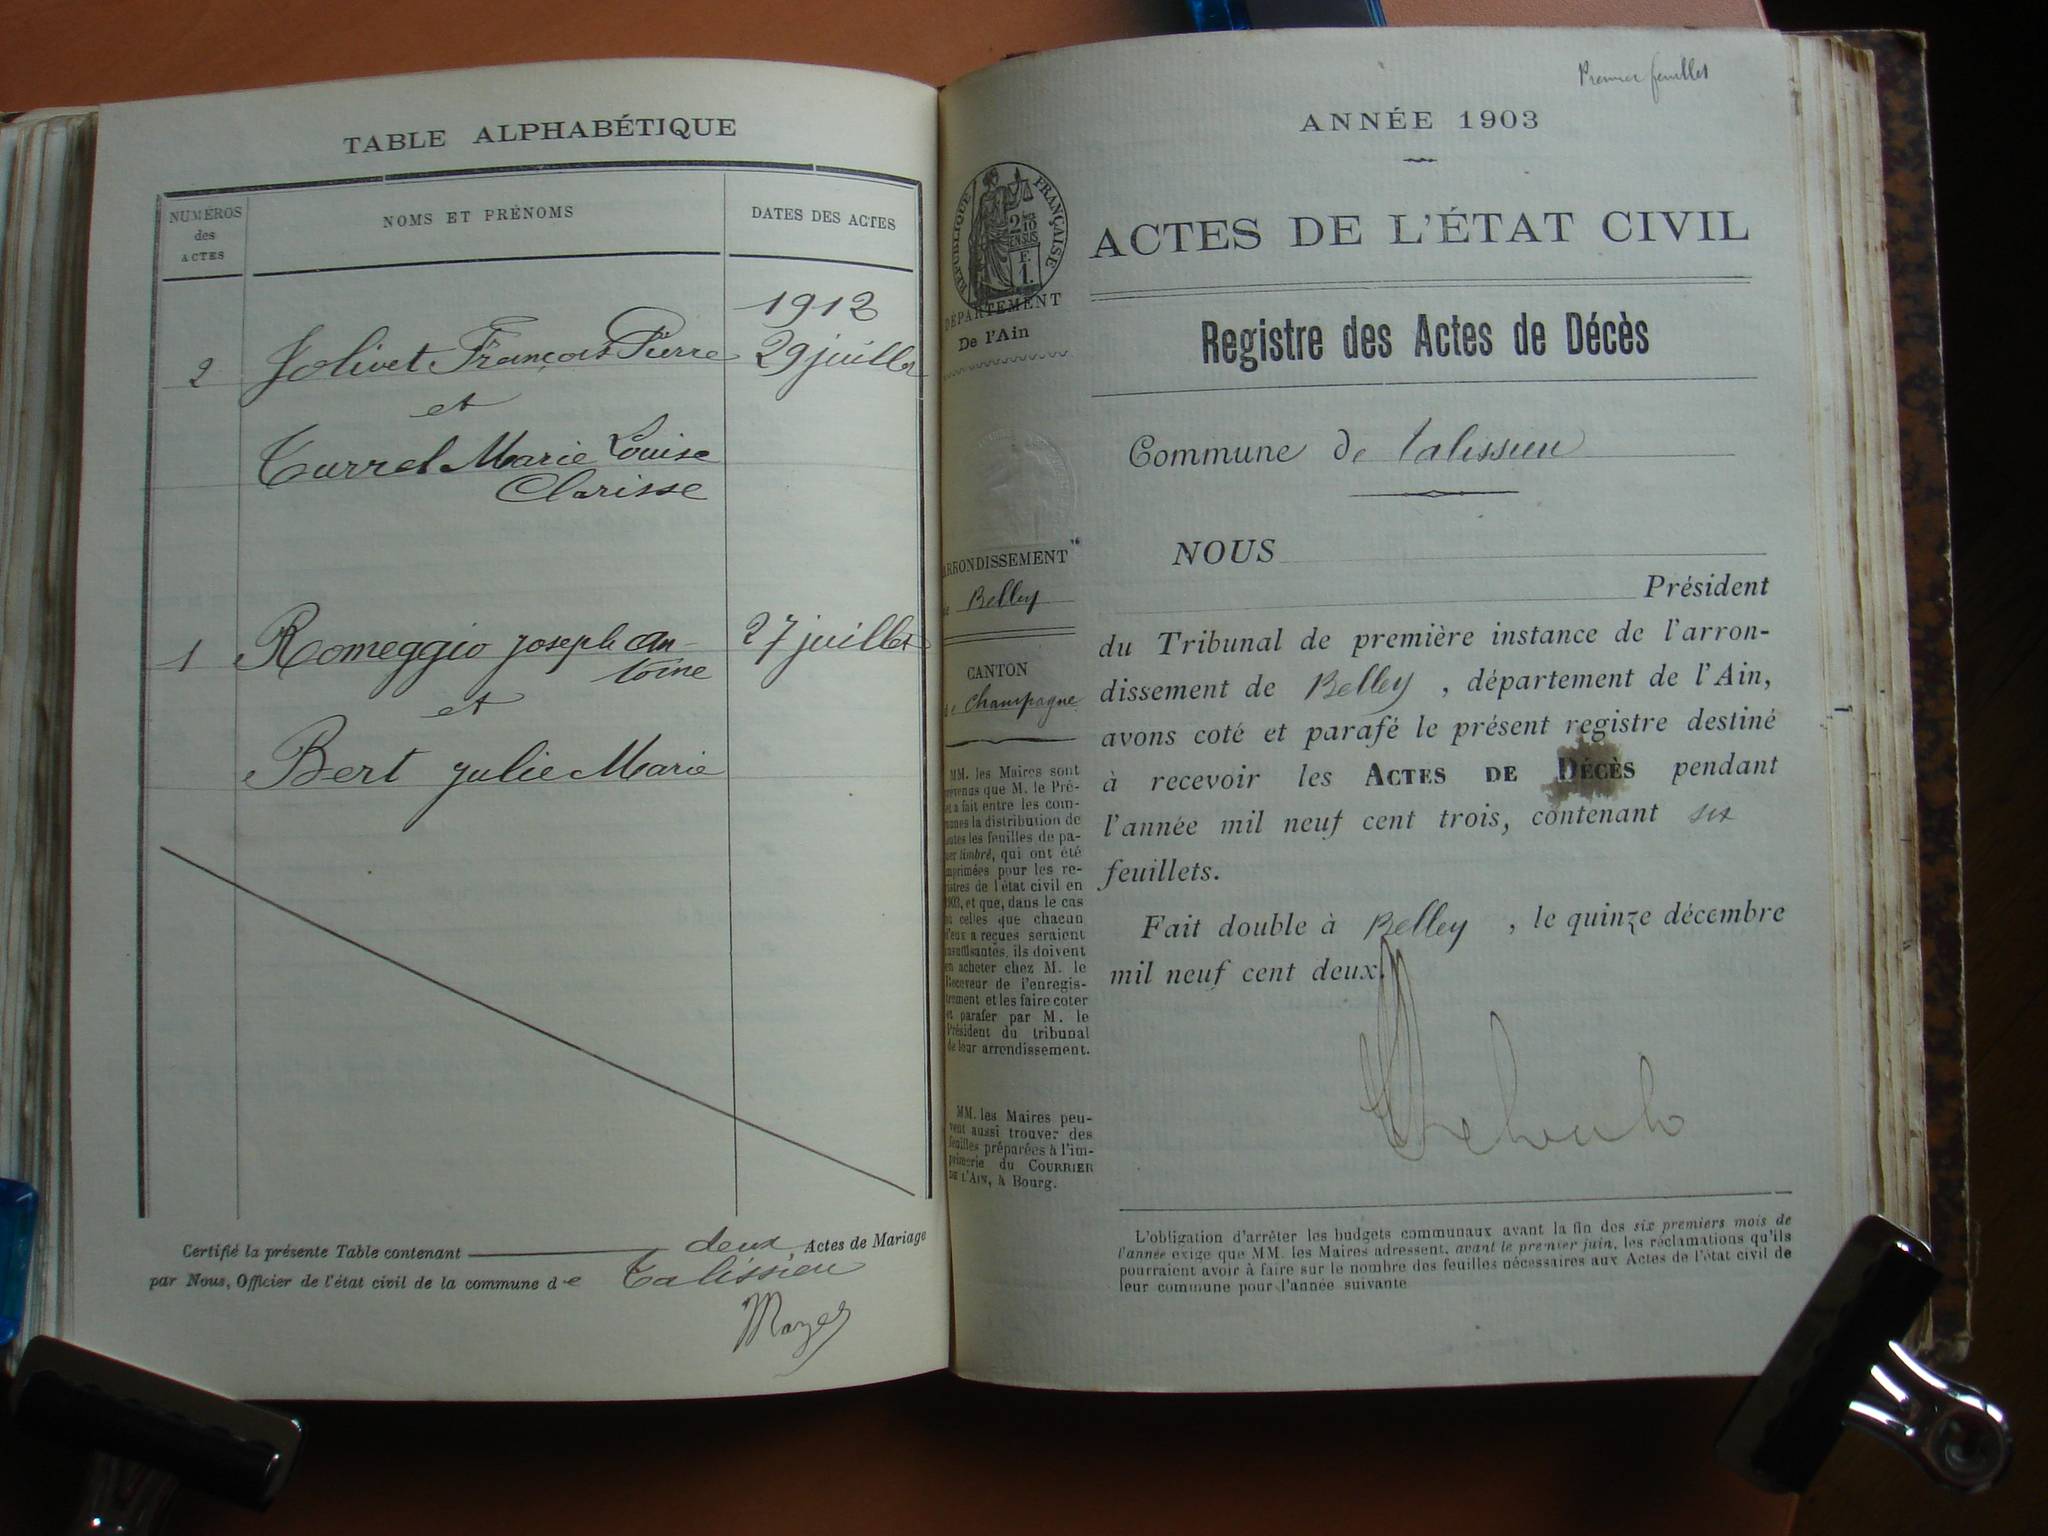 TABLE ALPHABÉTIQUE
NUMÉROS
des
ACTES
NOMS ET PRÉNOMS
DATES DES ACTES
1912
2 Jolivet François Pierre 29 juillet
et
Turrel Marie Louise
Clarisse
1 Romeggio joseph an- 27 juillet
toine
et
Bert julie Marie
Certifié la présente Table contenant deux, Actes de Mariage
par Nous, Officier de l'état civil de la commune de Talissieu
Premier feuillet
ANNÉE 1903
RÉPUBLIQUE FRANÇAISE
2/10
EN SUS
F.
1.
DÉPARTEMENT
De l'Ain
ARRONDISSEMENT
Belley
CANTON
de Champagne
MM. les Maires sont
prévenus que M. le Pré-
et a fait entre les com-
munes la distribution de
toutes les feuilles de pa-
pier timbré, qui ont été
imprimées pour les re-
gistres de l'état civil en
1903, et que, dans le cas
où celles que chacun
d'eux a reçues seraient
insuffisantes, ils doivent
en acheter chez M. le
Receveur de l'enregis-
trement et les faire coter
et parafer par M. le
Président du tribunal
de leur arrondissement.
MM. les Maires peu-
vent aussi trouver des
feuilles préparées à l'im-
primerie du COURRIER
DE L'AIN, à Bourg.
ACTES DE L'ÉTAT CIVIL
Registre des Actes de Décès
Commune de Talissieu
NOUS
Président
du Tribunal de première instance de l'arron-
dissement de Belley, département de l'Ain,
avons coté et parafé le présent registre destiné
à recevoir les ACTES DE DÉCÈS pendant
l'année mil neuf cent trois, contenant six
feuillets.
Fait double à Belley, le quinze décembre
mil neuf cent deux.
L'obligation d'arrêter les budgets communaux avant la fin des six premiers mois de
l'année exige que MM. les Maires adressent, avant le premier juin, les réclamations qu'ils
pourraient avoir à faire sur le nombre des feuilles nécessaires aux Actes de l'état civil de
leur commune pour l'année suivante